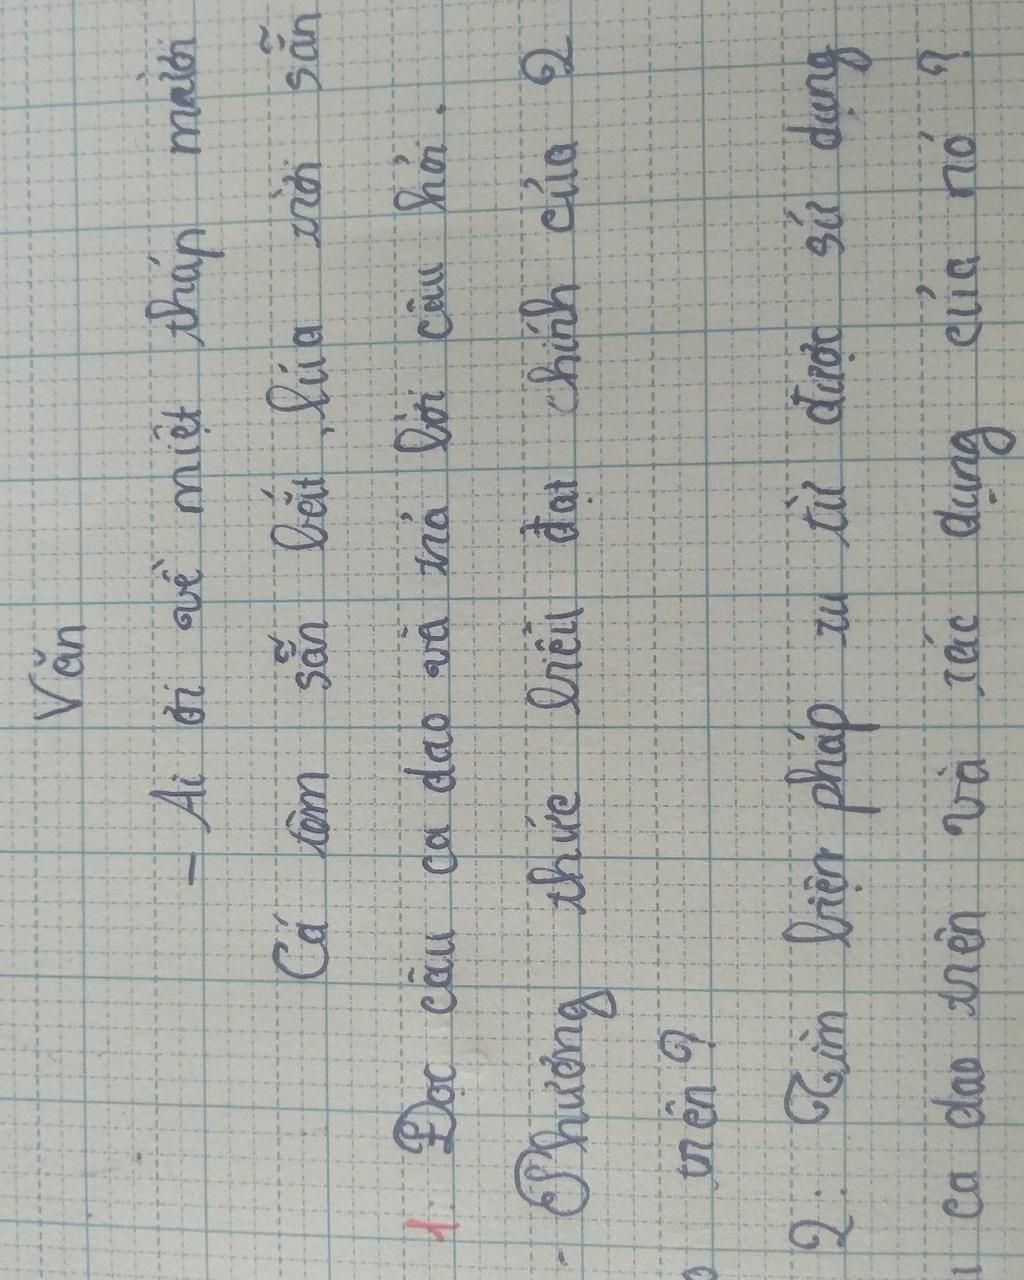 Văn
– Ai ơi về miệt tháp mười
Cá tôm sẵn bắt, lúa trời sẵn
1. Đọc câu ca dao và trả lời câu hỏi.
- Phương thức biểu đạt chính của 2
trên ?
2. Tìm biện pháp tu từ được sử dụng
ca dao trên và tác dụng của nó ?